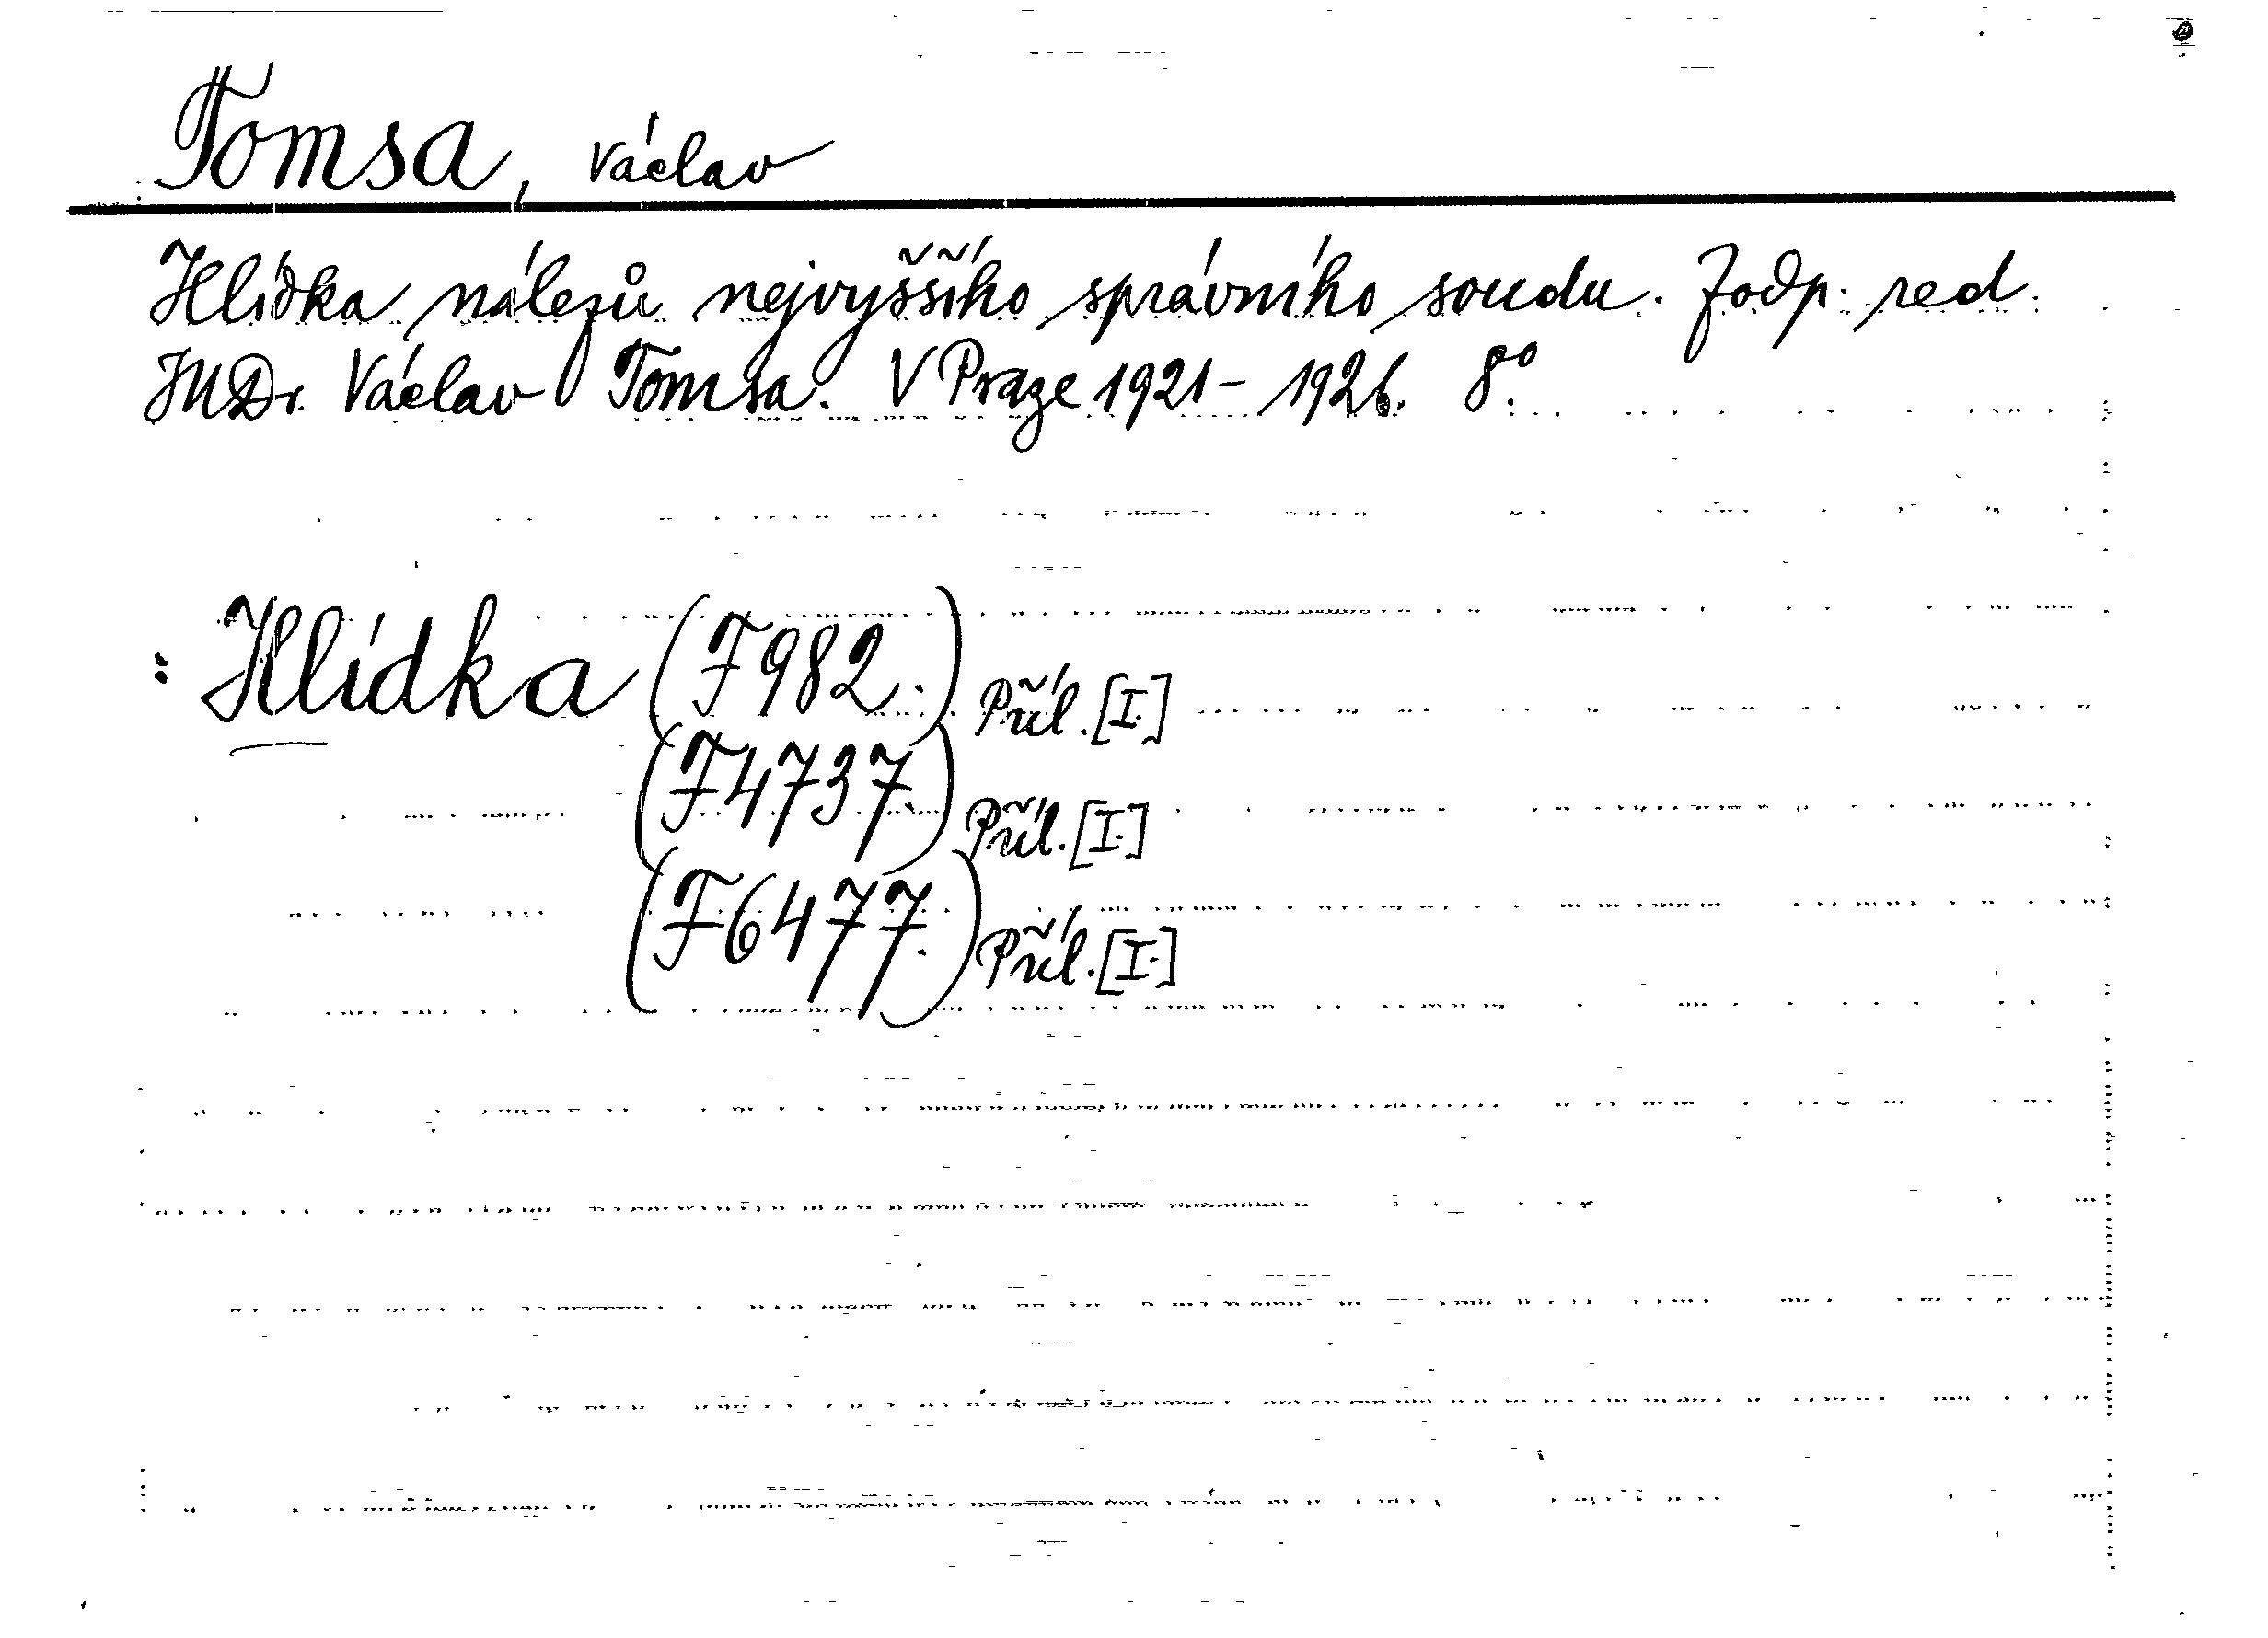 Tomsa, Václav
Hlídka nálezů nejvyššího správního soudu. Zodp. red.
JUDr. Václav Tomsa. V Praze 1921-1926. 8°.
: Hlídka (F 982.) Příl. [I.]
(F 4737) Příl. [I.]
(F 6477.) Příl. [I.]